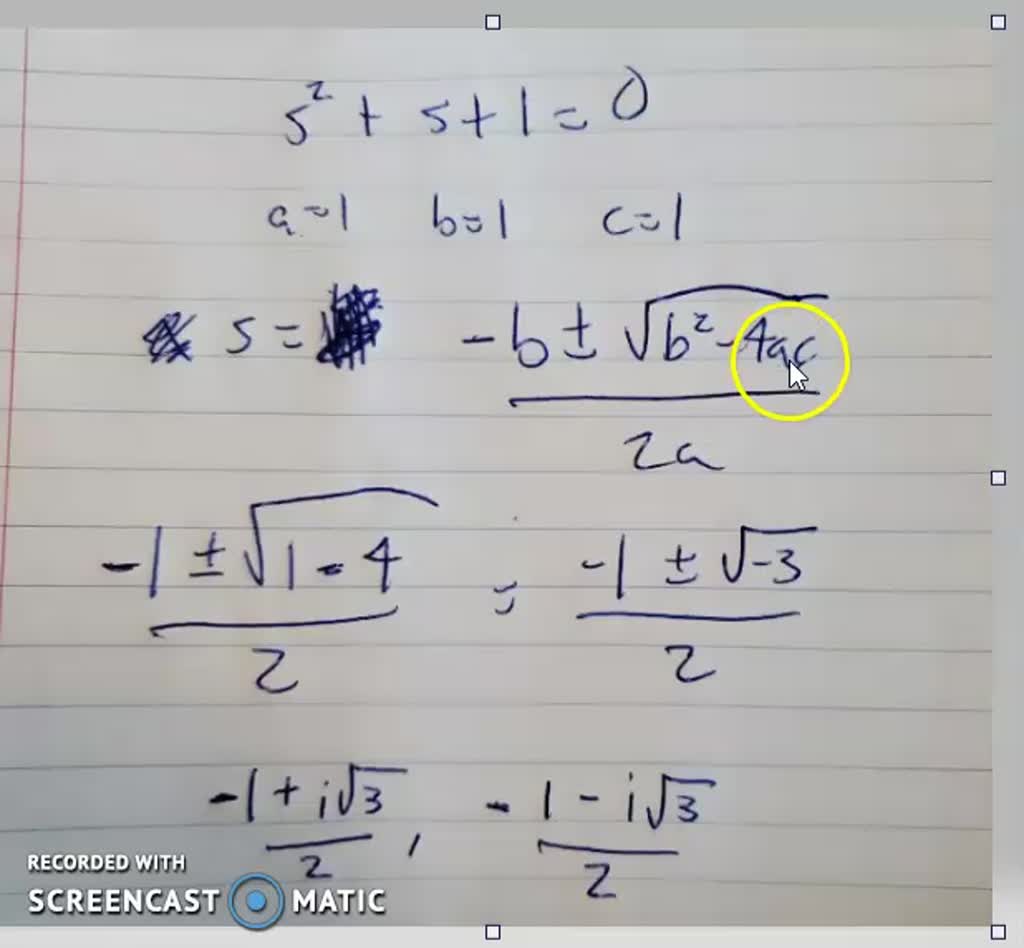 s² + s + 1 = 0
a = 1 b = 1 c = 1
s = -b ± √(b² - 4ac) / 2a
-1 ± √(1 - 4) / 2 = -1 ± √-3 / 2
-1 + i√3 / 2 , -1 - i√3 / 2
RECORDED WITH
SCREENCAST MATIC